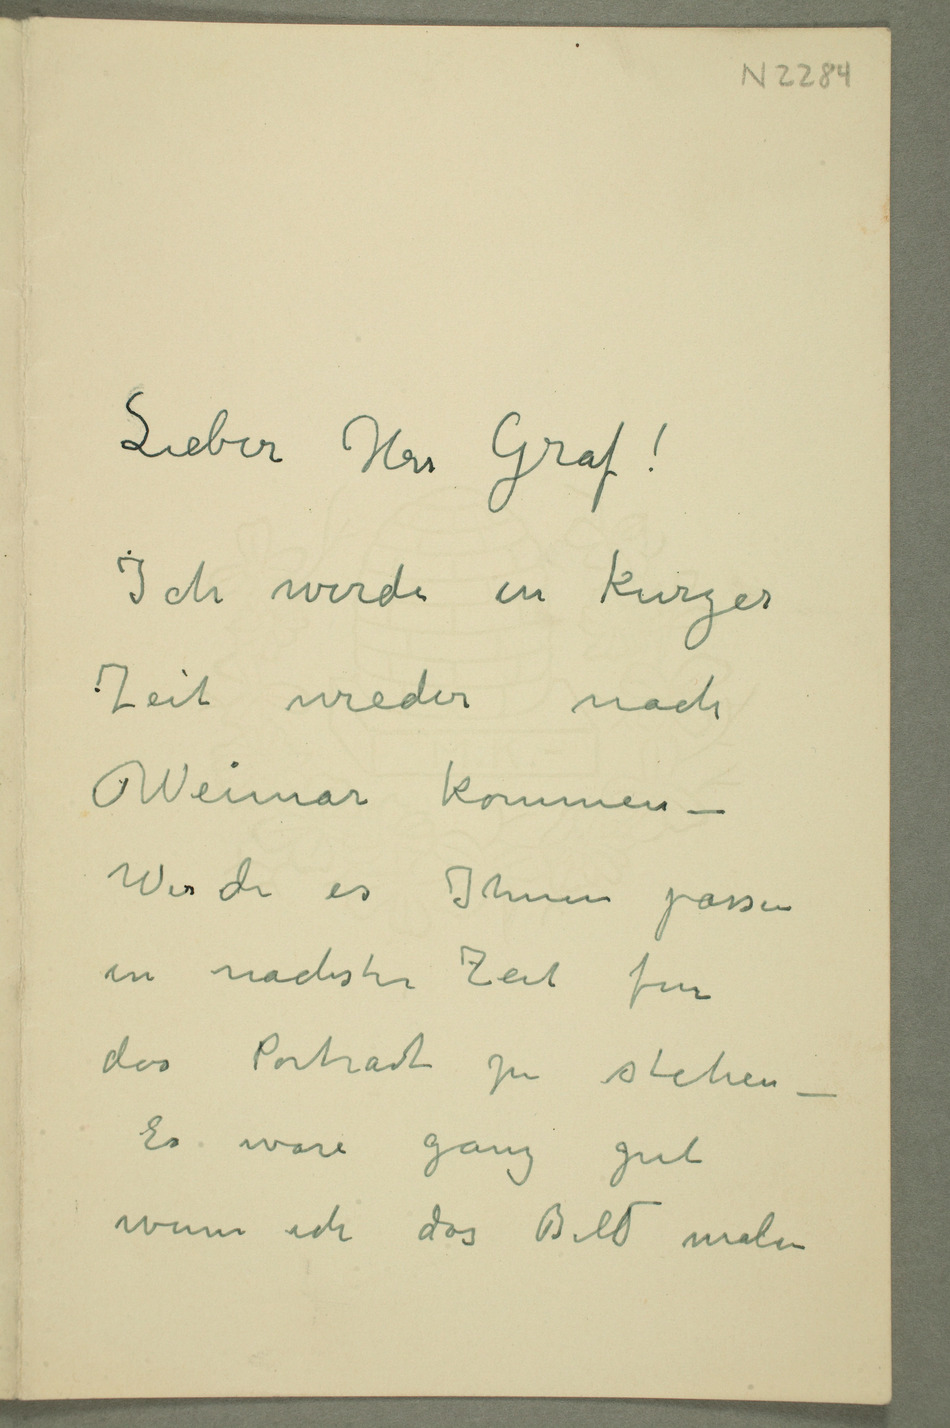 N 2284
Lieber Herr Graf!
Ich werde in kurzer
Zeit wieder nach
Weimar kommen –
Werde es Ihnen passen
in nachster Zeit fur
das Portradt zu stehen –
Es ware ganz gut
wenn ich das Bild malen